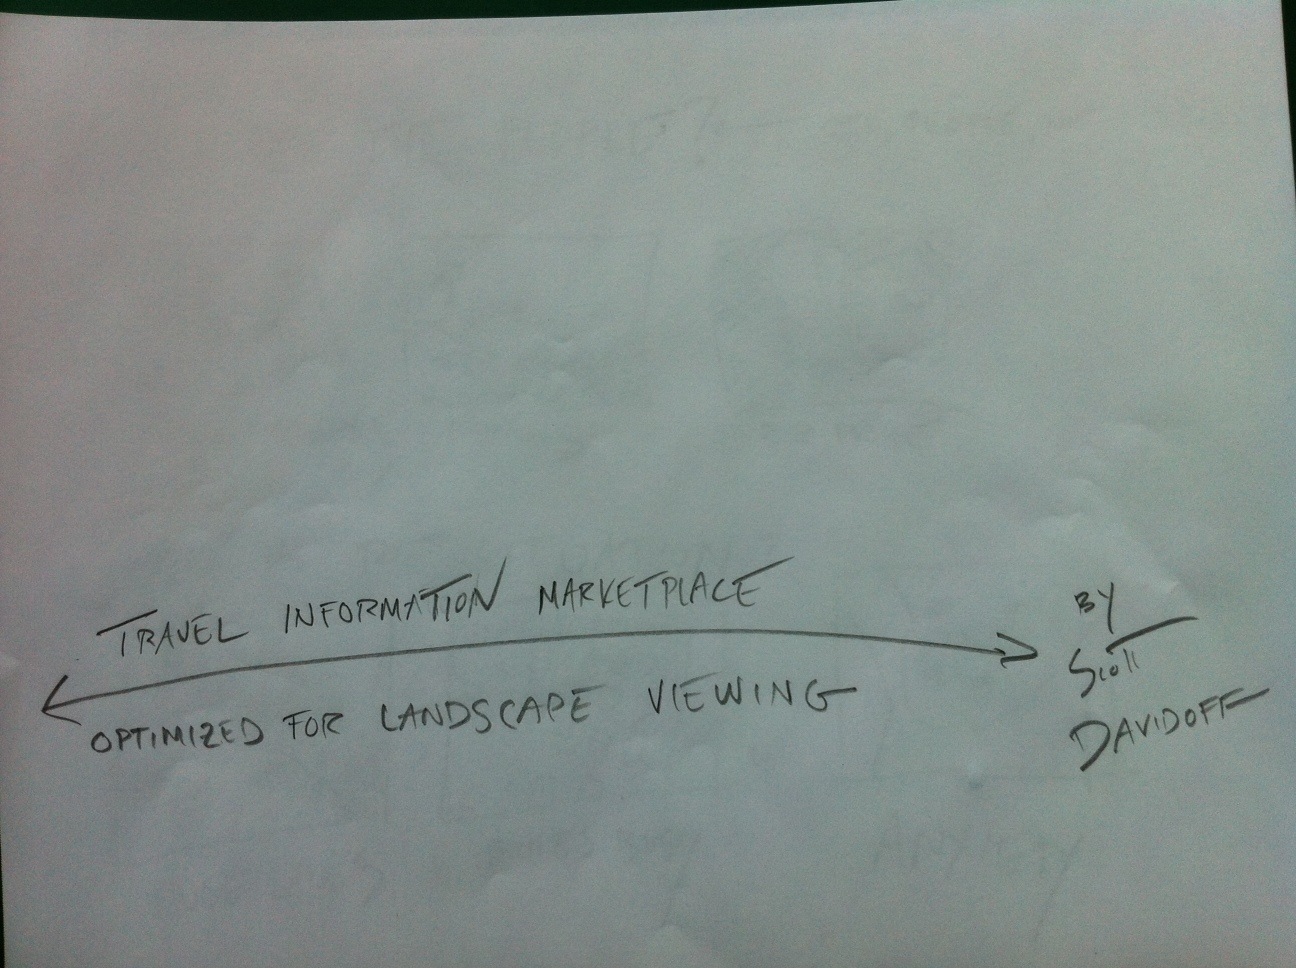 TRAVEL INFORMATION MARKETPLACE
OPTIMIZED FOR LANDSCAPE VIEWING
BY
Scott
DAVIDOFF